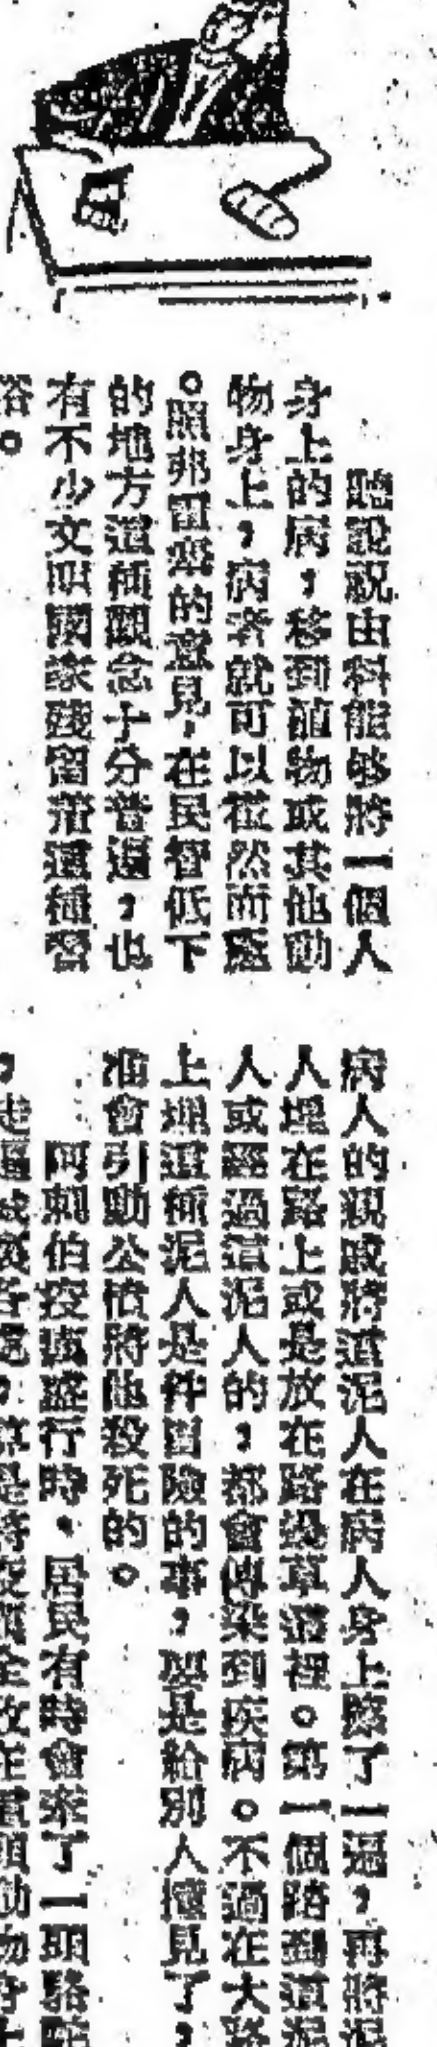 聽說祝由科能够將一個人
身上的病，移到植物或其他動
物身上，病者就可以霍然而癒
。照弗雷零的意見，在民智低下
的地方這種觀念十分普遍，也
有不少文明國家殘留着這種習
俗。
病人的親戚將這泥人在病人身上擦了一遍，再將泥
人埋在路上或是放在路邊草叢裡。第一個踏到這泥
人或經過這泥人的，都會傳染到疾病。不過在大路
上埋這種泥人是件冒險的事，要是給別人撞見了，
准會引動公憤將他殺死的。
阿剌伯疫癘盛行時，居民有時會牽了一頭駱駝
，走遍城